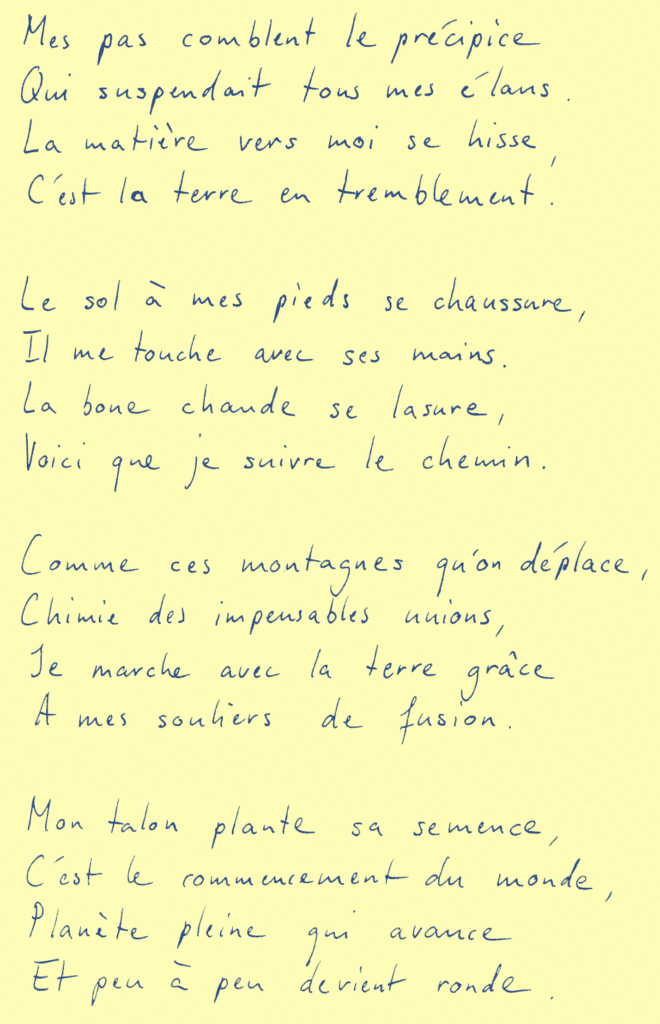 Mes pas comblent le précipice
Qui suspendait tous mes élans.
La matière vers moi se hisse,
C'est la terre en tremblement.

Le sol à mes pieds se chaussure,
Il me touche avec ses mains.
La boue chaude se lasure,
Voici que je suivre le chemin.

Comme ces montagnes qu'on déplace,
Chimie des impensables unions,
Je marche avec la terre grâce
A mes souliers de fusion.

Mon talon plante sa semence,
C'est le commencement du monde,
Planète pleine qui avance
Et peu à peu devient ronde.